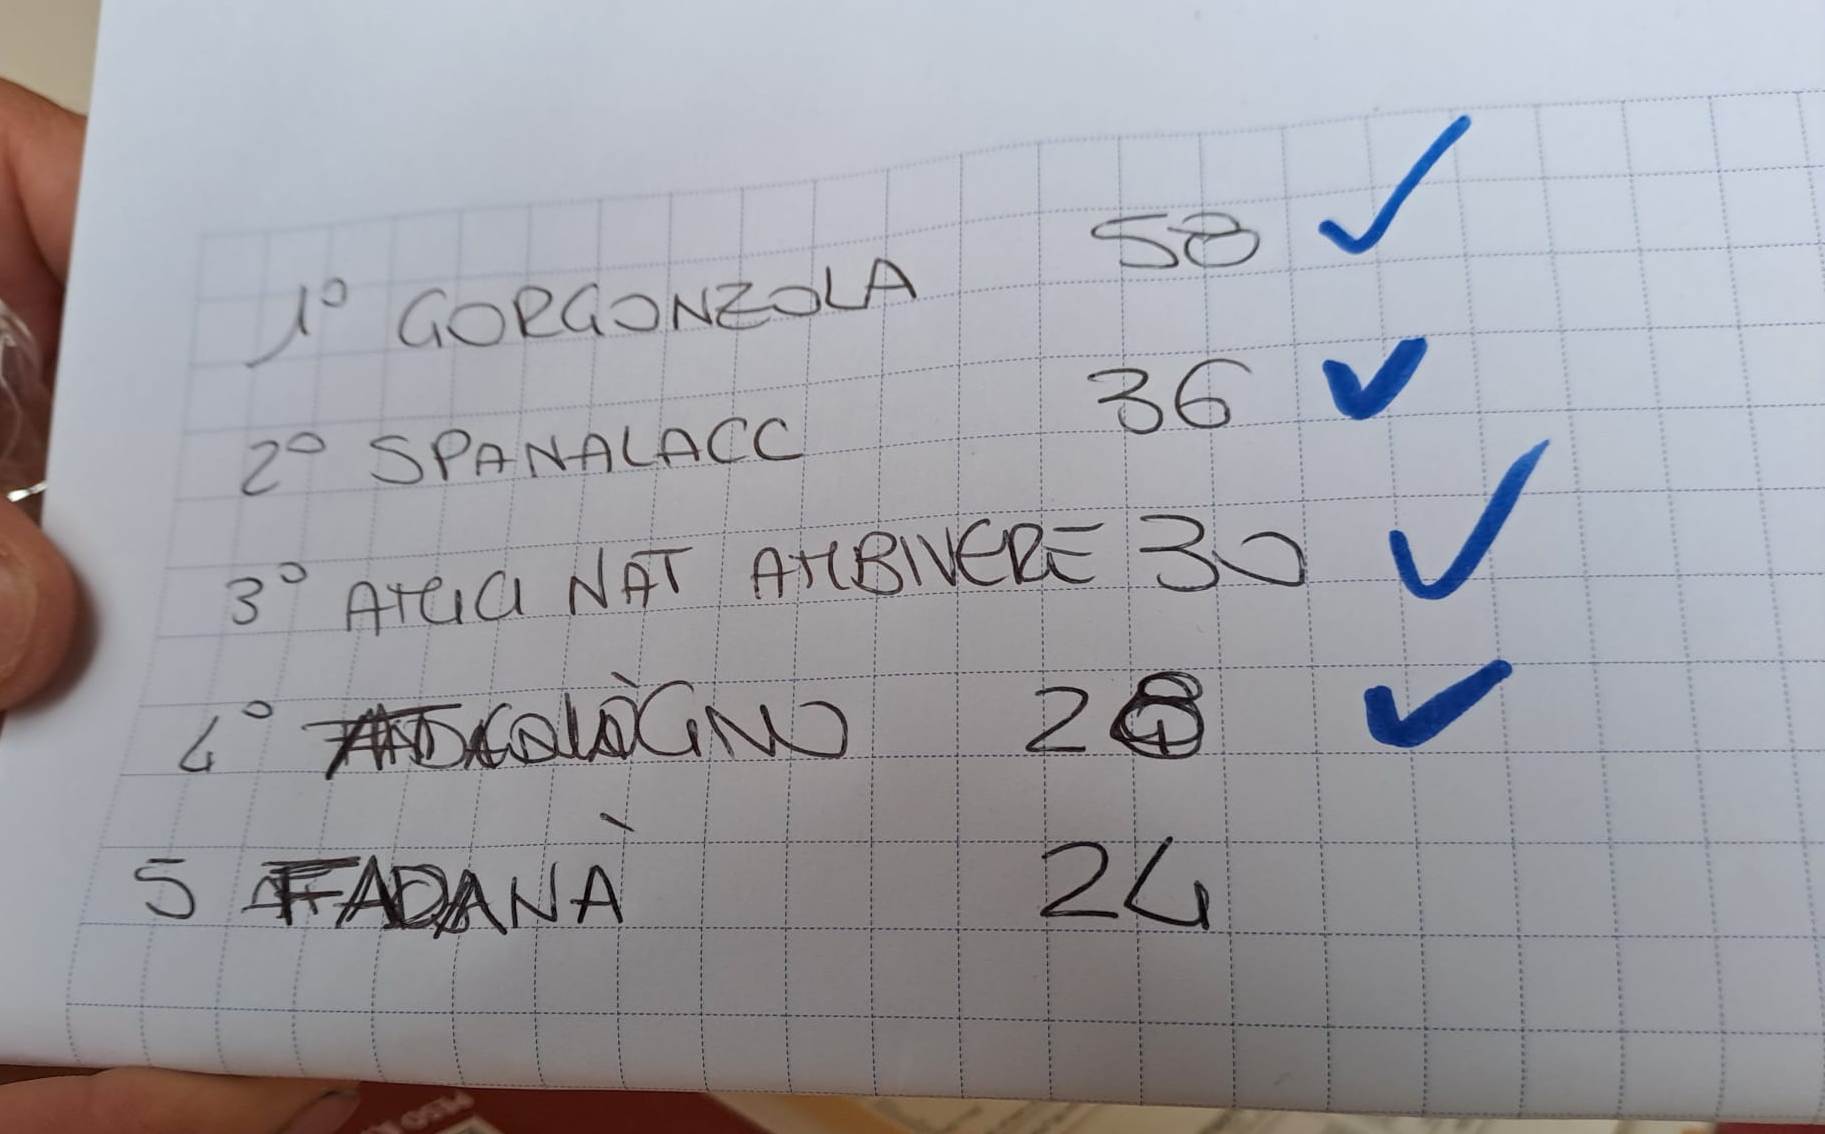 1° GORGONZOLA 58
2° SPANALACC 36
3° AMICI NAT AMBIVERE 30
4° COLÒGNO 28
5 FADANÀ 24